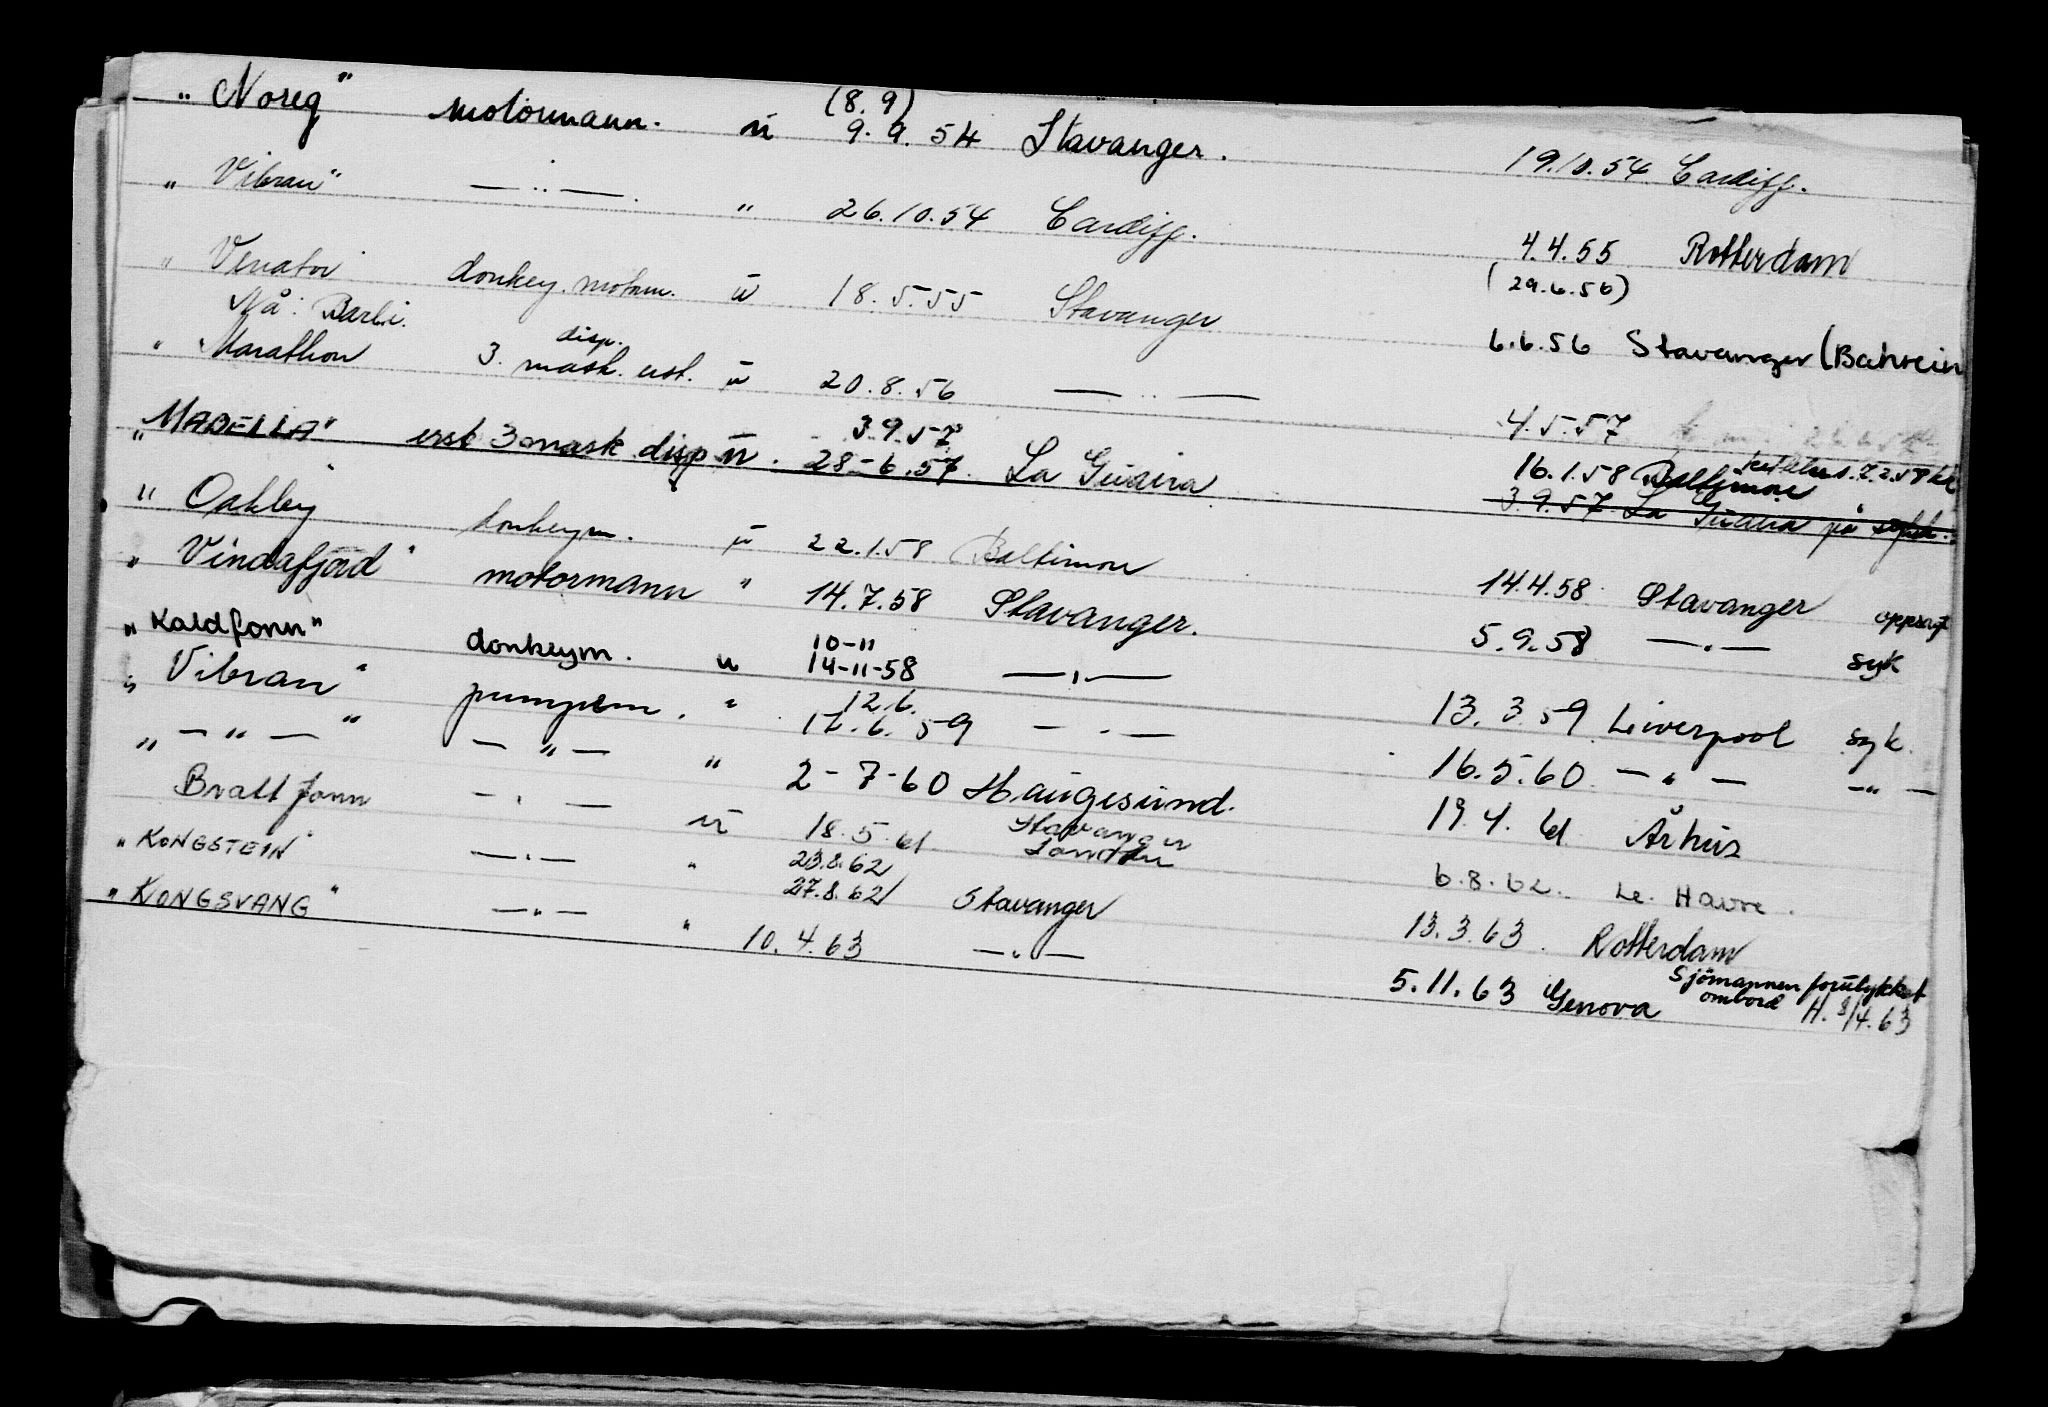 „ Noreg" motormann. u (8.9) 9.9.54 Stavanger. 19.10.54 Cardiff.
„ Vibran" — „ — . " 26.10.54 Cardiff. 4.4.55 Rotterdam
" Venator donkey.motorm. u 18.5.55 Stavanger (29.6.56)
Nå: Barbi. 6.6.56 Stavanger (Bahrein
" Marathon 3. disp. mask. erst. u 20.8.56 — „ — 4.5.57
„ MABELLA" erst 3 mask disp u. 3.9.57 28-6.57. La Guaira 16.1.58 Baltimore
3.9.57. La Guaira på
" Oakley donkeym. u 22.1.58 Baltimore 14.4.58 Stavanger oppsagt
„ Vindafjord" motormann " 14.7.58 Stavanger. 5.9.58 — „ — syk
„ Kaldfonn" donkeym. u 10-11 14-11-58 — „ — 13.3.59 Liverpool syk.
„ Vibran" pumpem. " 12.6. 17.6.59 — „ — 16.5.60 — „ — — „ —
„ — „ — " — „ — " 2-7-60 Haugesund. 19.4.61 Århus
Brattfonn — „ — u 18.5.61 Stavanger London 6.8.62. Le. Havre.
„ KONGSTEIN" — „ — " 23.8.62 27.8.62 Stavanger 13.3.63. Rotterdam
„ KONGSVANG" — „ — " 10.4.63 — „ — 5.11.63 Genova Sjömannen forulykket ombord H. 8/4.63